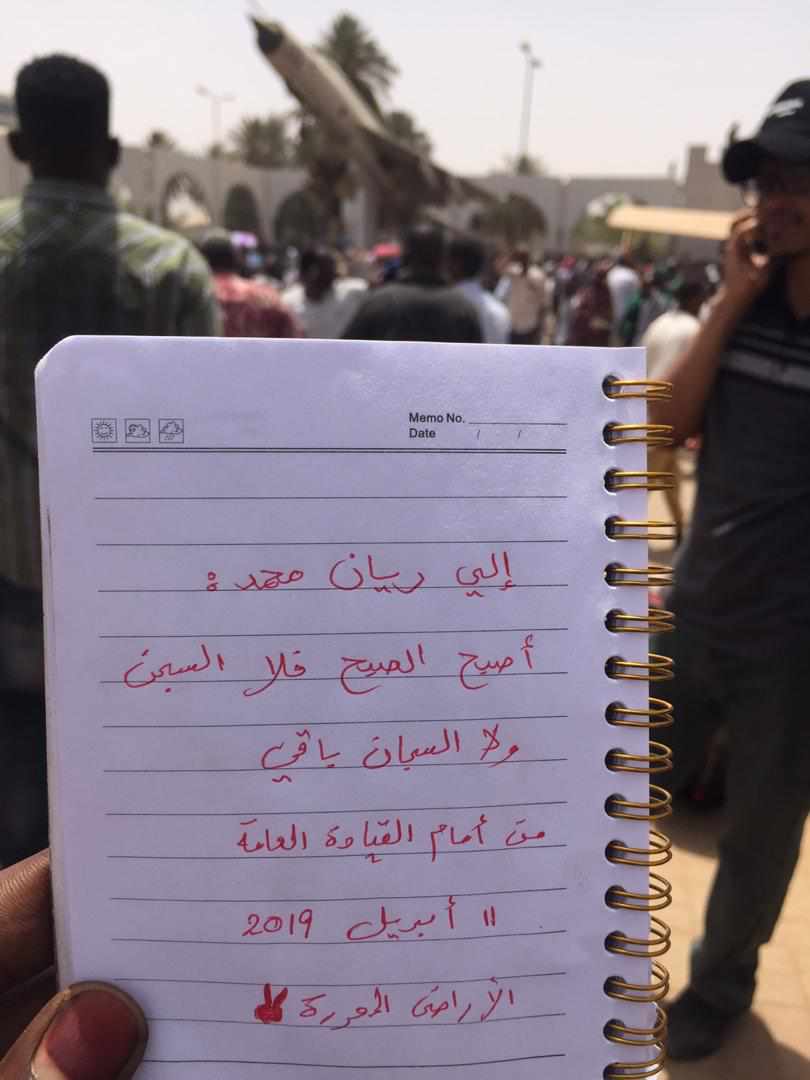 Memo No.
Date / /
إلي ريان محمد :
أصبح الصبح فلا السجن
ولا السجان باقي
من أمام القيادة العامة
11 أبريل 2019
الأراضي المحررة ✌